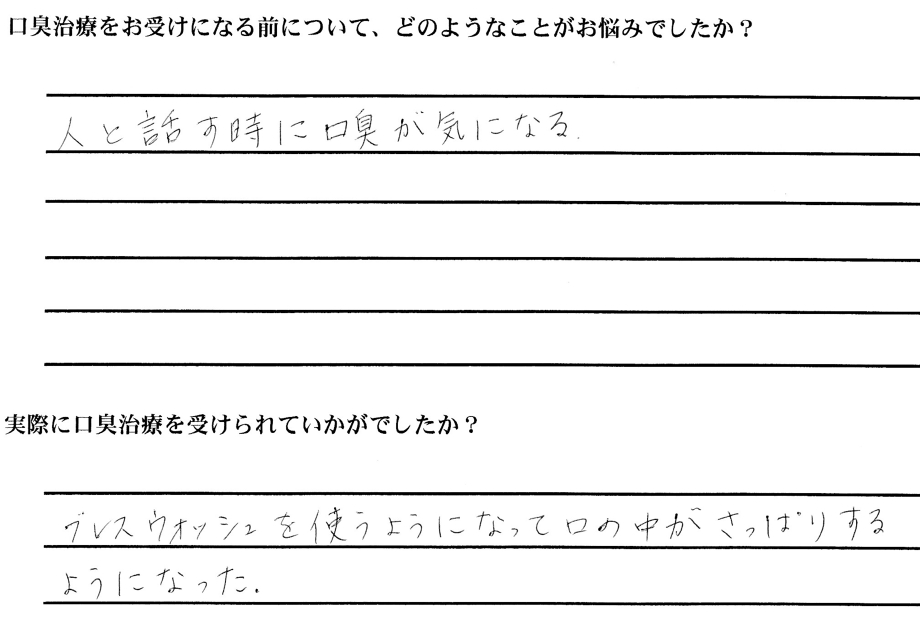 口臭治療をお受けになる前について、どのようなことがお悩みでしたか？
人と話す時に口臭が気になる.
実際に口臭治療を受けられていかがでしたか？
ブレスウォッシュを使うようになって口の中がさっぱりする
ようになった.